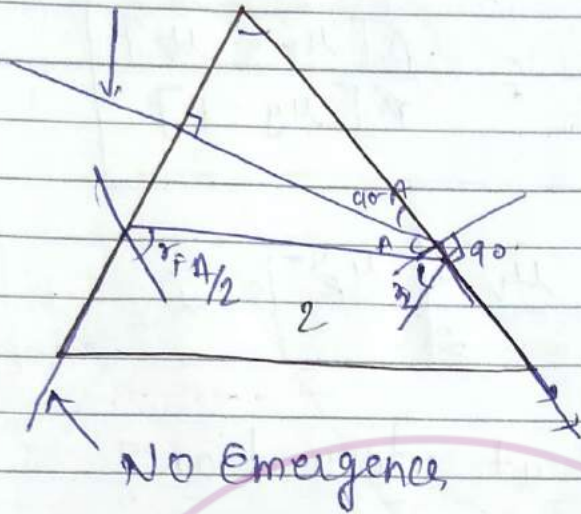 90-A
A
90
r₁=A/2
r₂
2
NO Emergence